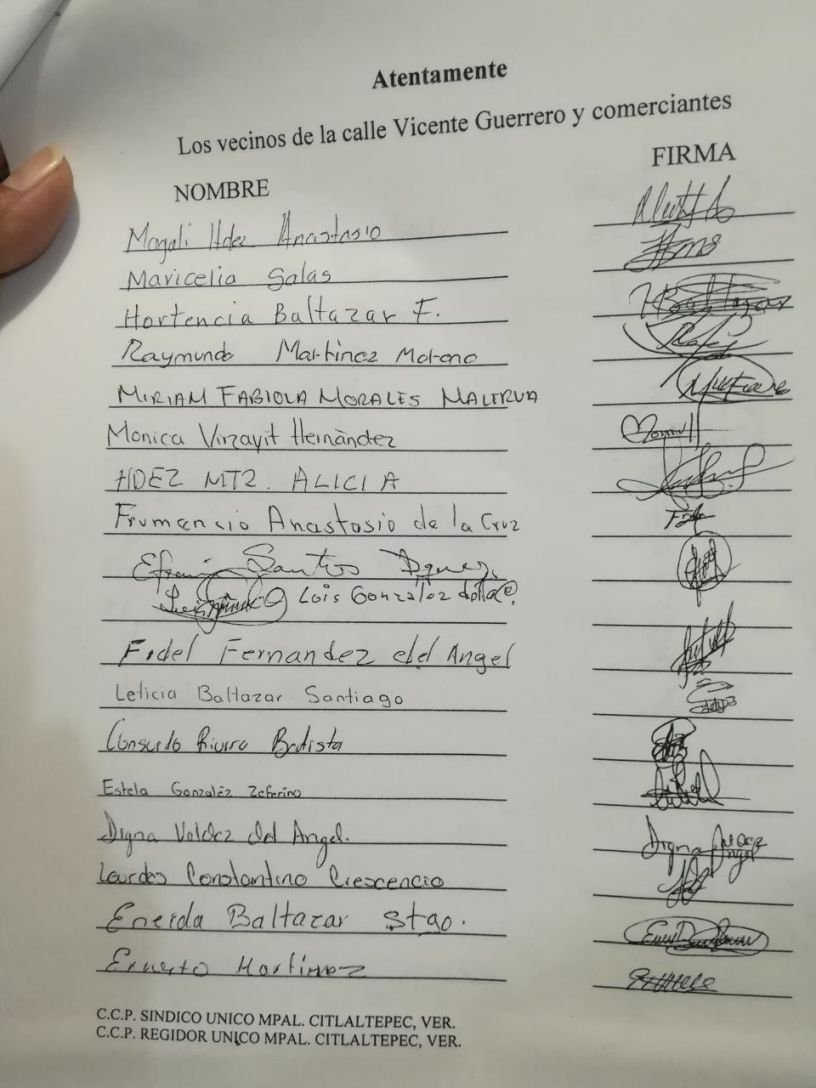 Atentamente
Los vecinos de la calle Vicente Guerrero y comerciantes
NOMBRE FIRMA
Magali Hdez Anastasio
Maricelia Salas
Hortencia Baltazar F. HBaltazar
Raymundo Martinez Moreno
MIRIAM FABIOLA MORALES MALERVA
Monica Virzavit Hernàndez
HDEZ MTZ. ALICIA
Frumencio Anastasio de la Cruz
Efrain Santos
Lois Gonzalez
Fidel Fernandez del Angel
Leticia Baltazar Santiago
Consuelo Rivera Batista
Estela Gonzalez Zeferino
Digna Valdez del Angel. Digna
Lourdes Constantino Crescencio
Eneida Baltazar Stgo.
Ernesto Martinez
C.C.P. SINDICO UNICO MPAL. CITLALTEPEC, VER.
C.C.P. REGIDOR UNICO MPAL. CITLALTEPEC, VER.